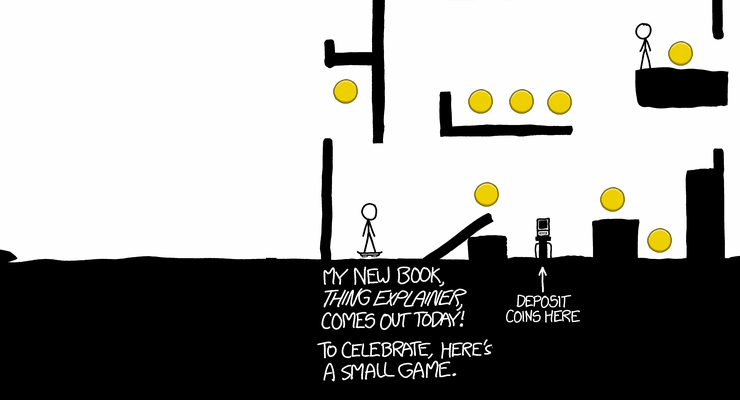 MY NEW BOOK,
THING EXPLAINER,
COMES OUT TODAY!
TO CELEBRATE, HERE'S
A SMALL GAME.
DEPOSIT
COINS HERE